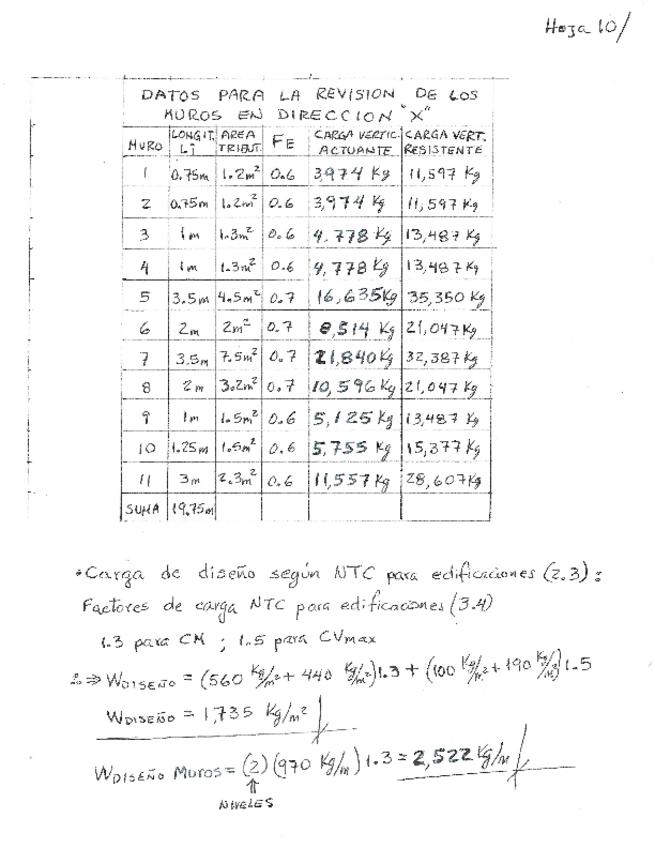 Hoja 10/
DATOS PARA LA REVISION DE LOS
MUROS EN DIRECCION "X"
MURO LONGIT. Li AREA TRIBUT. FE CARGA VERTIC. ACTUANTE CARGA VERT. RESISTENTE
1 0.75m 1.2m² 0.6 3,974 Kg 11,597 Kg
2 0.75m 1.2m² 0.6 3,974 Kg 11,597 Kg
3 1m 1.3m² 0.6 4,778 Kg 13,487 Kg
4 1m 1.3m² 0.6 4,778 Kg 13,487 Kg
5 3.5m 4.5m² 0.7 16,635Kg 35,350 Kg
6 2m 2m² 0.7 8,514 Kg 21,047Kg
7 3.5m 7.5m² 0.7 21,840Kg 32,387 Kg
8 2m 3.2m² 0.7 10,596 Kg 21,047 Kg
9 1m 1.5m² 0.6 5,125 Kg 13,487 Kg
10 1.25m 1.5m² 0.6 5,755 Kg 15,377 Kg
11 3m 2.3m² 0.6 11,557Kg 28,607Kg
SUMA 19.75m
*Carga de diseño según NTC para edificaciones (2.3):
Factores de carga NTC para edificaciones (3.4)
1.3 para CM ; 1.5 para CVmax
∴ ⇒ WDISEÑO = (560 Kg/m² + 440 Kg/m²)1.3 + (100 Kg/m² + 190 Kg/m²)1.5
WDISEÑO = 1,735 Kg/m²
WDISEÑO MUROS = (2)(970 Kg/m)1.3 = 2,522 Kg/m
⇑
NIVELES